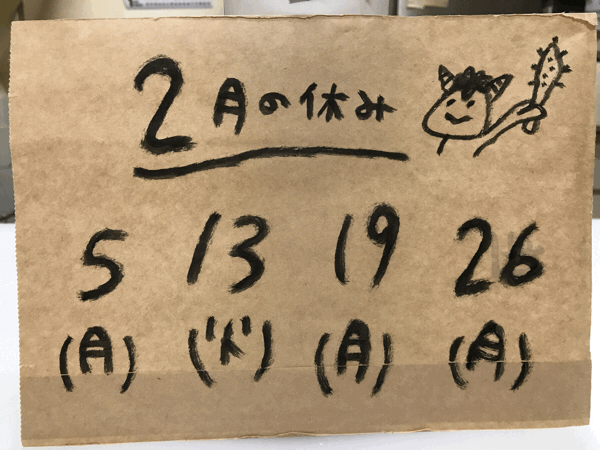 2月の休み
5 13 19 26
(月) (火) (月) (月)